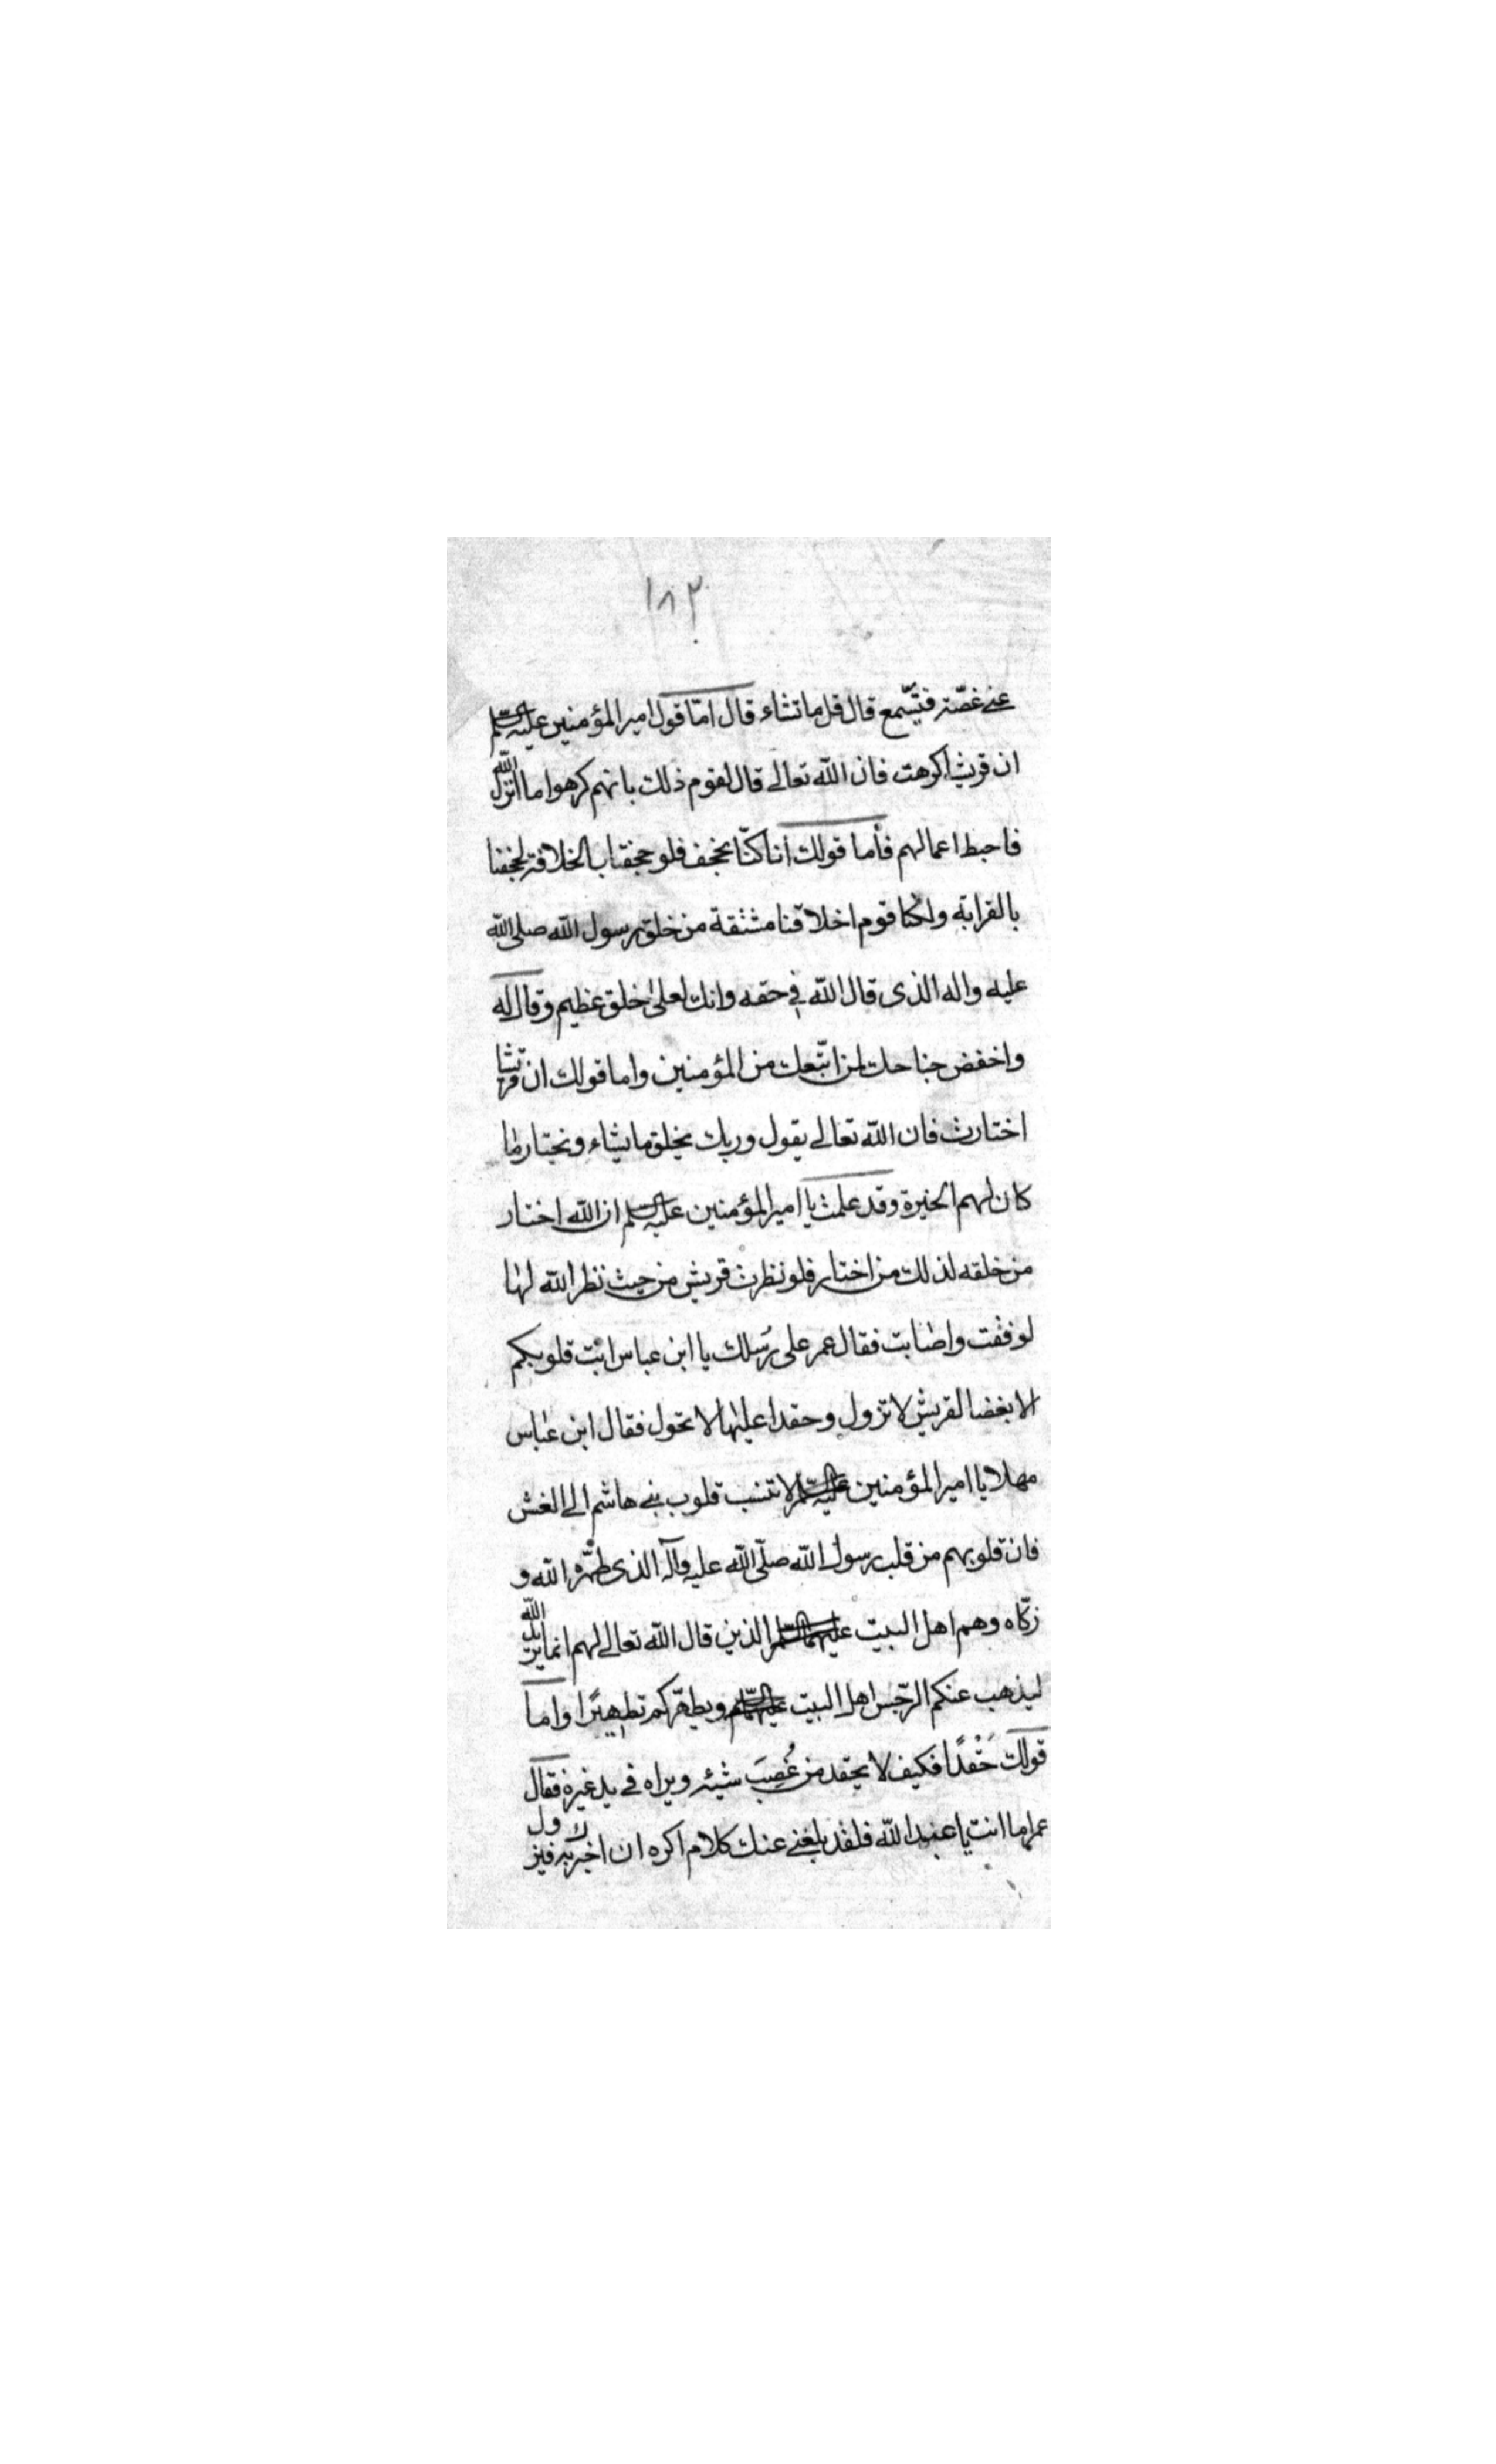 ١٨٢
عنى غصته فتسمع قال قل ما تشاء قال امّا قول امير المؤمنين عليه السلم
ان قريشا كرهت فان الله تعالى قال لقوم ذلك بانهم كرهوا ما انزل الله
فاحبط اعمالهم فأما قولك أنا كنّا نجخف فلو جخفنا بالخلافة لجخفنا
بالقرابة ولكنا قوم اخلاقنا مشتقة من خلق رسول الله صلى الله
عليه واله الذى قال الله فى حقه وانك لعلى خلق عظيم وقال له
واخفض جناحك لمن اتّبعك من المؤمنين واما قولك ان قريشا
اختارت فان الله تعالى يقول وربك يخلق ما يشاء ويختار ما
كان لهم الخيرة وقد علمت يا امير المؤمنين عليه السلم ان الله اختار
من خلقه لذلك من اختار فلو نظرت قريش من حيث نظر الله لها
لوفقت واصابت فقال عمر على رسلك يا ابن عباس ابت قلوبكم
الا بغضا لقريش لا تزول وحقدا عليها لا تحول فقال ابن عباس
مهلا يا امير المؤمنين عليه السلم لا تنسب قلوب بنى هاشم الى الغش
فان قلوبهم من قلب رسول الله صلّى الله عليه وآله الذى طهّره الله و
زكّاه وهم اهل البيت عليهم السلم الذين قال الله تعالى لهم انما يريد الله
ليذهب عنكم الرّجس اهل البيت عليهم السلم ويطهّركم تطهيرًا واما
قولك حَقْدًا فكيف لا يحقد من غُصِبَ شيئه ويراه فى يد غيره فقال
عمر اما انت يا عبد الله فلقد بلغنى عنك كلام اكره ان اخبرك به فيزول